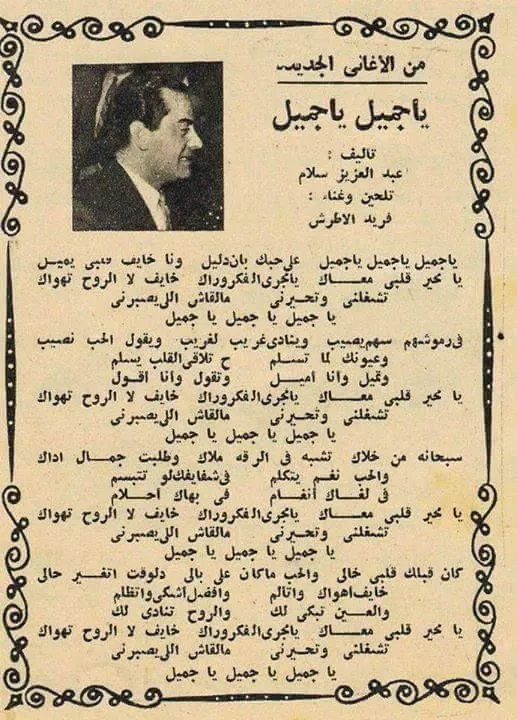 من الأغانى الجديدة
ياجميل ياجميل
تاليف :
عبد العزيز سلام
تلحين وغناء :
فريد الاطرش
ياجميل ياجميل ياجميل على حبك بان دليل ونا خايف قلبى يميل
يا محير قلبى معاك يامجرى الفكر وراك خايف لا الروح تهواك
تشغلنى وتحيرنى مالقاش اللى يصبرنى
يا جميل يا جميل يا جميل
فى رموشهم سهم يصيب وينادى غريب لغريب ويقول الحب نصيب
وعيونك لما تسلم ح تلاقى القلب يسلم
وتميل وأنا أميل وتقول وأنا أقول
يا محير قلبى معاك يامجرى الفكر وراك خايف لا الروح تهواك
تشغلنى وتحيرنى مالقاش اللى يصبرنى
يا جميل يا جميل يا جميل
سبحانه من خلاك تشبه فى الرقه ملاك وطلبت جمال اداك
والحب نغم يتكلم فى شفايفك لو تتبسم
فى لغاك أنغام فى بهاك احلام
يا محير قلبى معاك يامجرى الفكر وراك خايف لا الروح تهواك
تشغلنى وتحيرنى مالقاش اللى يصبرنى
يا جميل يا جميل يا جميل
كان قبلك قلبى خالى والحب ماكان على بالى دلوقت اتغير حالى
خايف أهواك واتألم وافضل أشكى واتظلم
والعين تبكى لك والروح تنادى لك
يا محير قلبى معاك يامجرى الفكر وراك خايف لا الروح تهواك
تشغلنى وتحيرنى مالقاش اللى يصبرنى
يا جميل يا جميل يا جميل